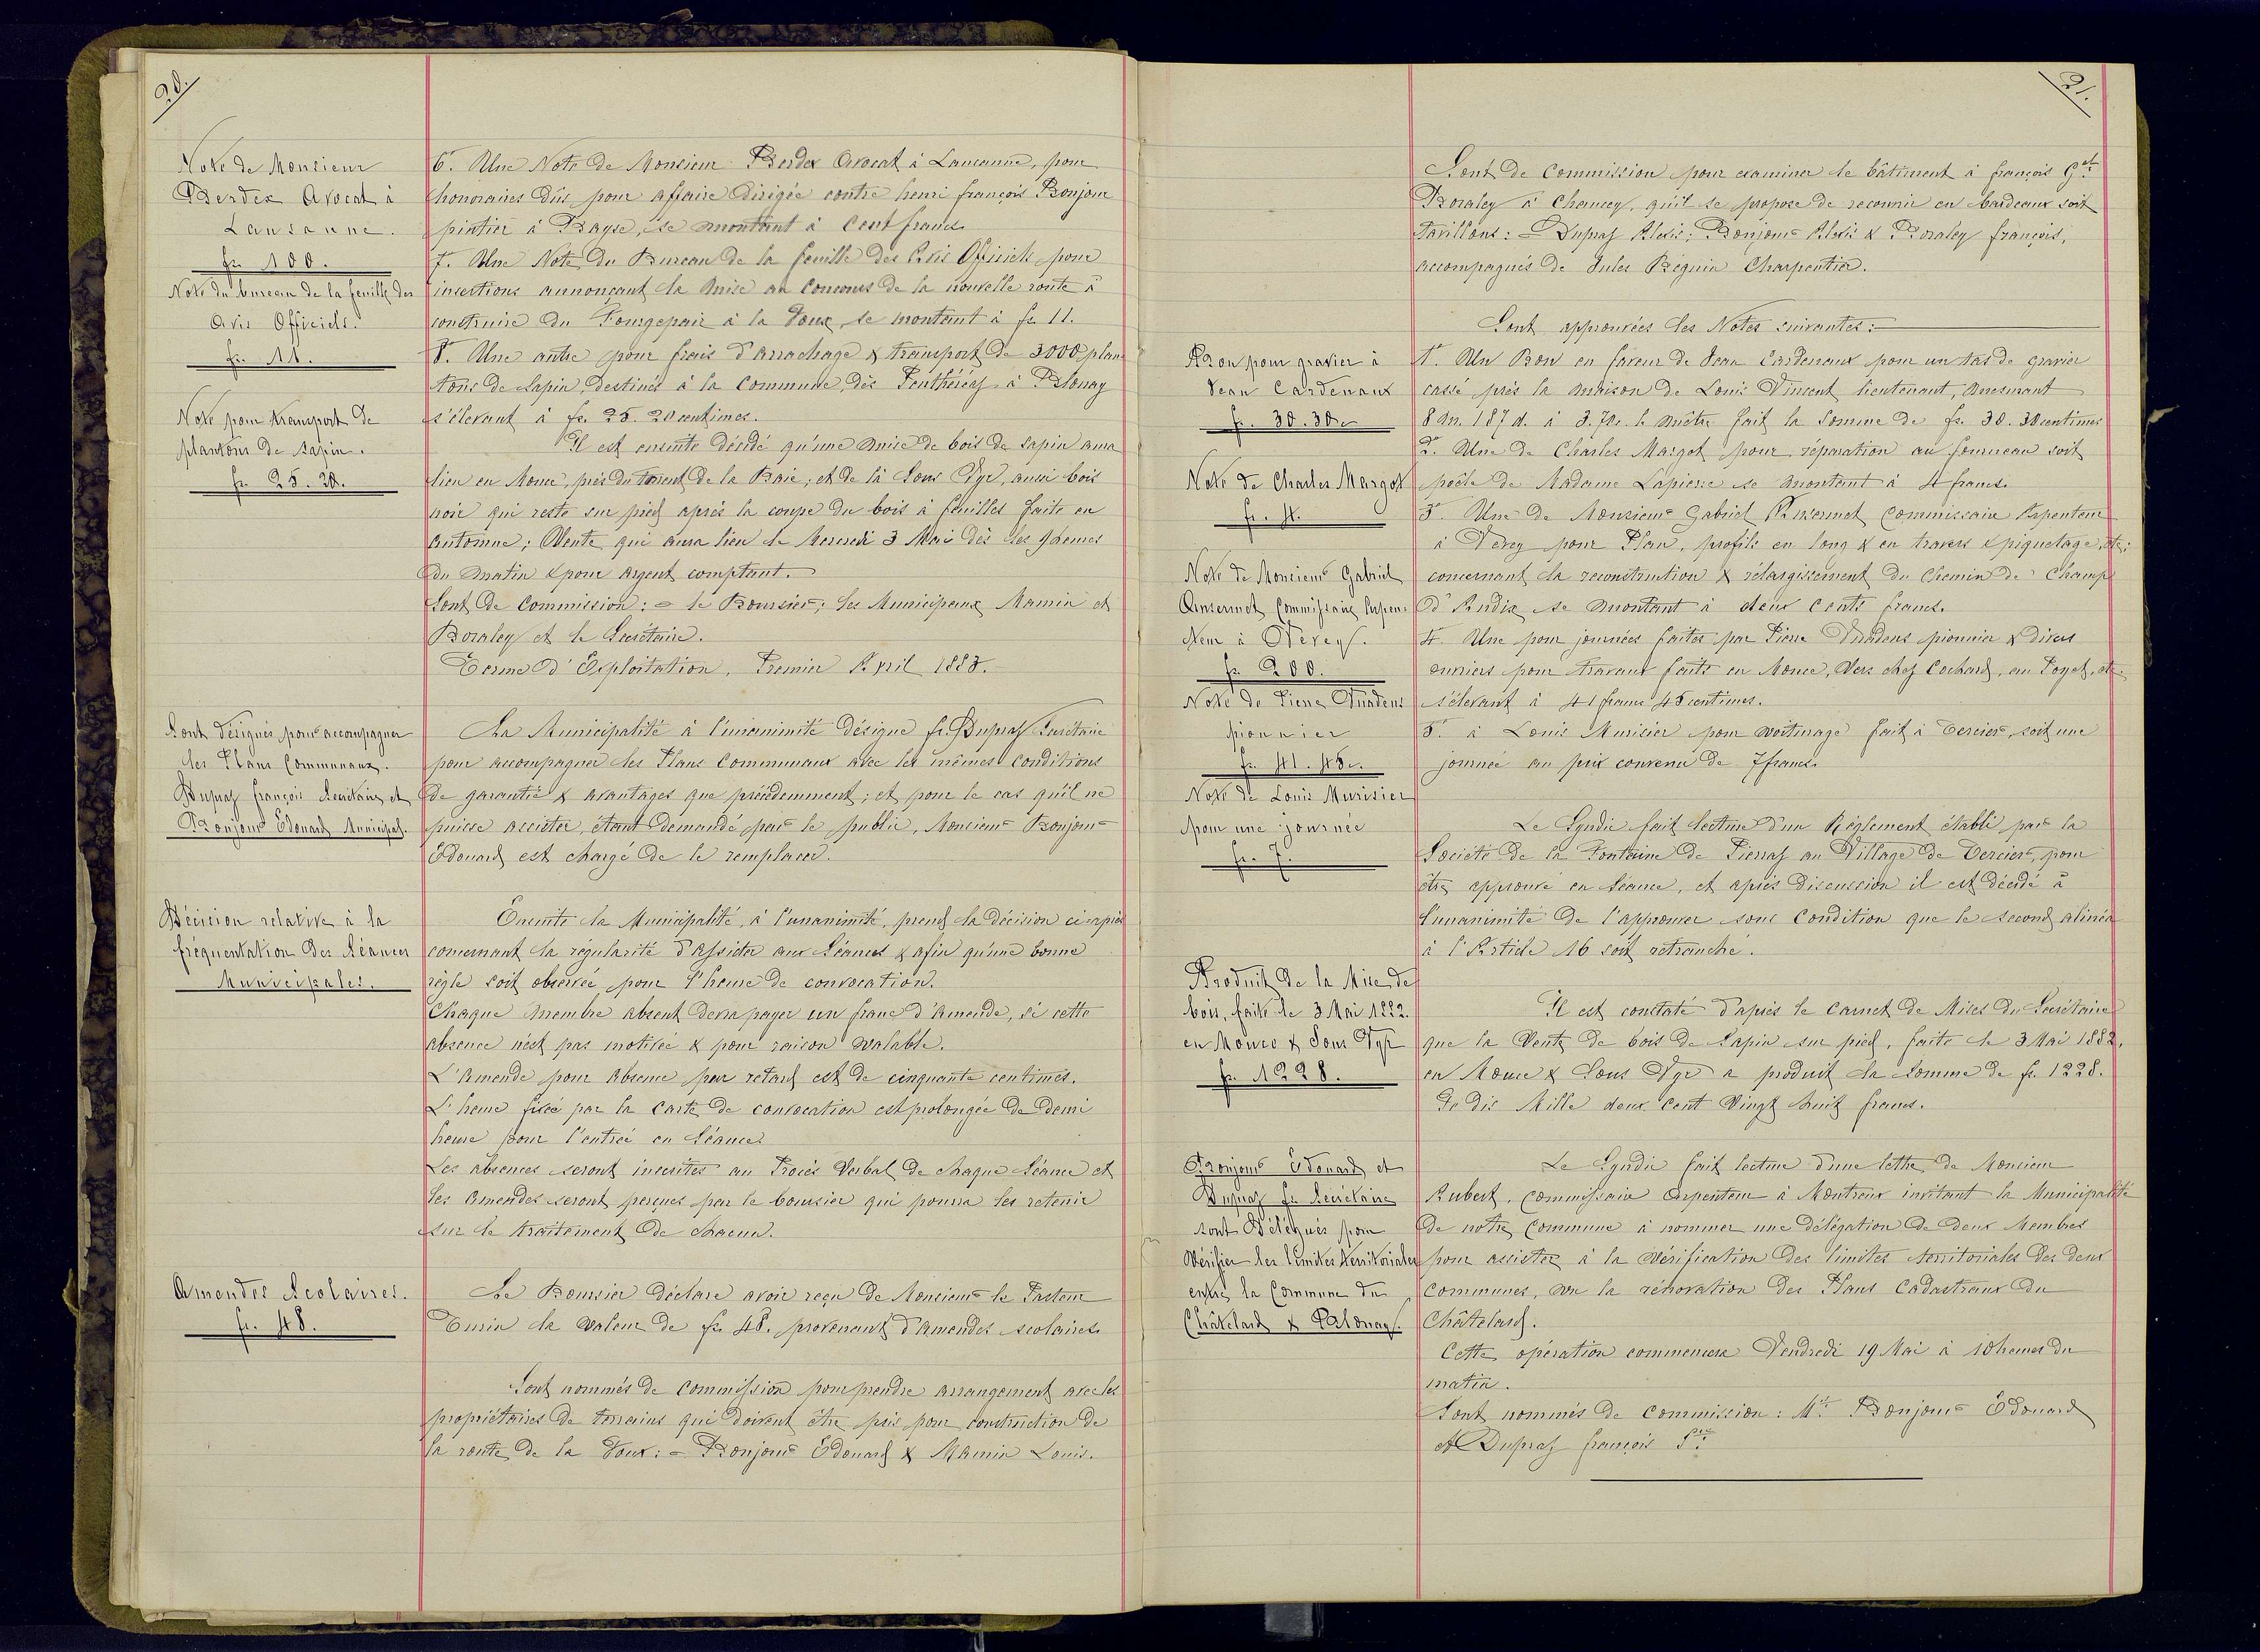 20.
Note de Monsieur
Berdez Avocat à
Lausanne.
fr. 100.
Note du bureau de la feuille des
Avis Officiels.
fr. 11.
Note pour transport de
plantons de sapin.
fr. 25. 20.
Sont désignés pour accompagner
les Plans Communaux.
Dupraz françois Secrétaire et
Bonjour Edouard Municipal.
Décision relative à la
fréquentation des Séances
Municipales.
Amendes Scolaires.
fr. 48.
6°. Une Note de Monsieur Berdez Avocat à Lausanne, pour
honoraires dûs pour affaire dirigée contre henri françois Bonjour
pintier à Bayse, se montant à Cent francs.
7°. Une Note du Bureau de la feuille des Avis Officiels pour
insertions annonçant la mise au Concours de la nouvelle route à
construire du Fourgepaix à la Foux, se montant à fr. 11.
8°. Une autre pour frais d'arrachage & transport de 3000 plan
tons de Sapin, destinés à la Commune, dès Penthéréaz à Blonay
s'élevant à fr. 25. 20 centimes.
Il est ensuite décidé qu'une mise de bois de sapin aura
lieu en Mouce, près du torrent de la Baie, et de là Sous Dyr, aussi bois
noir qui reste sur pied après la coupe du bois à feuilles faite en
automne; Vente qui aura lieu le Mercredi 3 Mai dès les 9 heures
du matin & pour argent comptant.
Sont de Commission: = le Boursier; les Municipaux Mamin et
Boraley et le Secrétaire.
Terme d'Exploitation, Premier Avril 1883.
La Municipalité à l'unanimité désigne fr. Dupraz Secrétaire
pour accompagner les Plans Communaux avec les mêmes conditions
de garantie & avantages que précédemment; et pour le cas qu'il ne
puisse assister, étant demandé par le public, Monsieur Bonjour
Edouard est chargé de le remplacer.
Ensuite la Municipalité, à l'unanimité, prend la décision ci-après
concernant la régularité d'assister aux Séances & afin qu'une bonne
règle soit observée pour l'heure de convocation.
Chaque membre absent devra payer un franc d'Amende, si cette
absence n'est pas motivée & pour raison valable.
L'Amende pour absence par retard est de cinquante centimes.
L'heure fixée par la carte de convocation est prolongée de demi
heure pour l'entrée en Séance.
Les absences seront inscrites au Procès Verbal de chaque Séance et
les amendes seront perçues par le boursier qui pourra les retenir
sur le traitement de chacun.
Le Boursier déclare avoir reçu de Monsieur le Pasteur
la valeur de fr. 48. provenant d'Amendes scolaires.
Sont nommés de Commission pour prendre arrangement avec les
propriétaires de terrains qui doivent être pris pour construction de
la route de la Foux: = Bonjour Edouard & Mamin Louis.
21.
Bon pour gravier à
Jean Cardenaux
fr. 30. 30c
Note de Charles Margot
fr. 4.
Note de Monsieur Gabriel
Ansermet Commissaire Arpen=
teur à Vevey.
fr. 200.
Note de Pierre
pionnier
fr. 41. 45c.
Note de Louis Murisier
pour une journée
fr. 7.
Produit de la Mise de
bois, faite le 3 Mai 1882.
en Mouce & Sous Dyr
fr. 1228.
Bonjour Edouard et
Dupraz fr. Secrétaire
sont Délégués pour
Vérifier les limites territoriales
entre la Commune du
Châtelard & Blonay.
Sont de Commission pour examiner le bâtiment à françois Gel
Boraley à Chaucey, qu'il se propose de recouvrir en bardeaux soit
Tavillons: = Dupraz Alexis; Bonjour Alexis & Boraley françois,
accompagnés de Jules Béguin Charpentier.
Sont approuvées les Notes suivantes:
1°. Un Bon en faveur de Jean Cardenaux pour un tas de gravier
cassé près la maison de Louis Vincent lieutenant, mesurant
8 m. 187 d. à 3.70c. le mètre fait la Somme de fr. 30. 30 centimes
2°. Une de Charles Margot pour réparation au fourneau soit
poêle de Madame Lapierre se montant à 4 francs.
3°. Une de Monsieur Gabriel Ansermet Commissaire Arpenteur
à Vevey pour Plan, profils en long & en travers & piquetage, etc:
concernant la reconstruction & rélargissement du Chemin de Champ
d'Andix se montant à deux cents francs.
4°. Une pour journées faites par Pierre pionnier & divers
ouvriers pour travaux faits en Mouce, Vers chez Cochard, au Foyet, etc:
s'élevant à 41 francs 45 centimes.
5°. à Louis Murisier pour voiturage fait à Tercier, soit une
journée au prix convenu de 7 francs.
Le Syndic fait lecture d'un Règlement établi par la
Société de la Fontaine de Pierraz au Village de Tercier, pour
être approuvé en Séance, et après discussion il est décidé à
l'unanimité de l'approuver sous condition que le second alinéa
à l'Article 16 soit retranché.
Il est constaté d'après le Carnet de Mises du Secrétaire
que la Vente de bois de Sapin sur pied, faite le 3 Mai 1882,
en Mouce & Sous Dyr a produit la Somme de fr. 1228.
Je dis Mille deux Cent Vingt huit francs.
Le Syndic fait lecture d'une lettre de Monsieur
Aubert, Commissaire Arpenteur à Montreux invitant la Municipalité
de notre Commune à nommer une délégation de deux Membres
pour assister à la Vérification des limites territoriales des deux
Communes, vu la rénovation des Plans Cadastraux du
Châtelard.
Cette opération commencera Vendredi 19 Mai à 10 heures du
matin.
Sont nommés de Commission: Mrs. Bonjour Edouard
et Dupraz françois Sre.